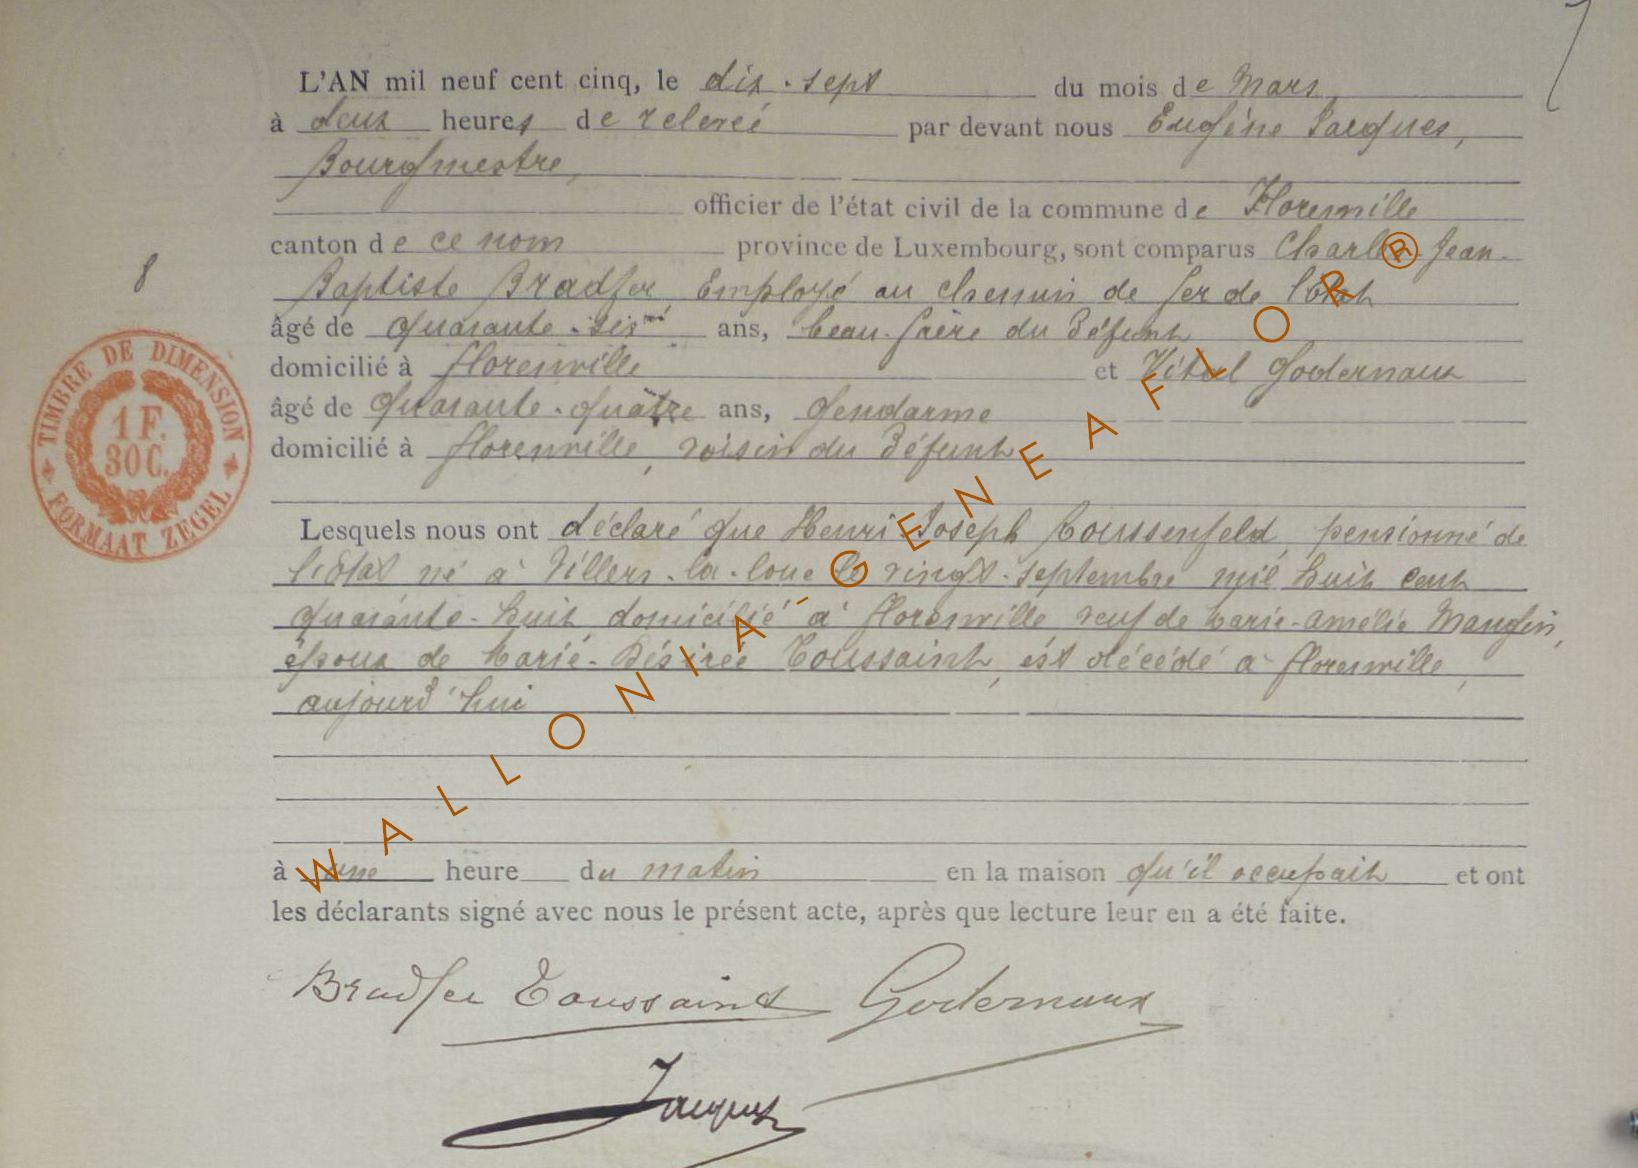 L'AN mil neuf cent cinq, le dix-sept du mois de Mars
à deux heures de relevée par devant nous Eugène Jacques,
Bourgmestre,
officier de l'état civil de la commune de Florenville
canton de ce nom province de Luxembourg, sont comparus Charles Jean-
8
Baptiste Bradfer, Employé au chemin de fer de l'Etat
âgé de quarante- ans, beau-frère du Défunt
domicilié à florenville et Vital Godernaux
âgé de quarante-quatre ans, gendarme
domicilié à florenville, voisin du Défunt
TIMBRE DE DIMENSION
1 F.
30 C.
FORMAAT ZEGEL
Lesquels nous ont déclaré que Henri Joseph Coussenfeld, pensionné de
l'Etat né à Villers-la-loue le vingt-septembre mil huit cent
quarante-huit domicilié à florenville veuf de Marie-Amélie Mangin,
époux de Marie-Désirée Toussaint, est décédé à florenville,
aujourd'hui
à une heure du matin en la maison qu'il occupait et ont
les déclarants signé avec nous le présent acte, après que lecture leur en a été faite.
Bradfer Toussaint Godernaux
Jacques
WALLONIA-GENEAFLOR®